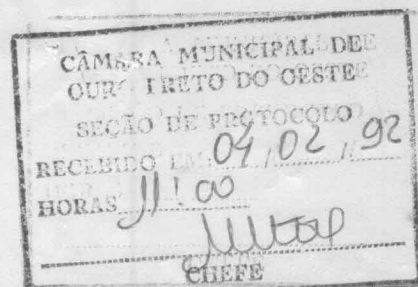 CÂMARA MUNICIPAL DE
OURO PRETO DO OESTE
SEÇÃO DE PROTOCOLO
RECEBIDO EM 04/02/92
HORAS 11:00
CHEFE